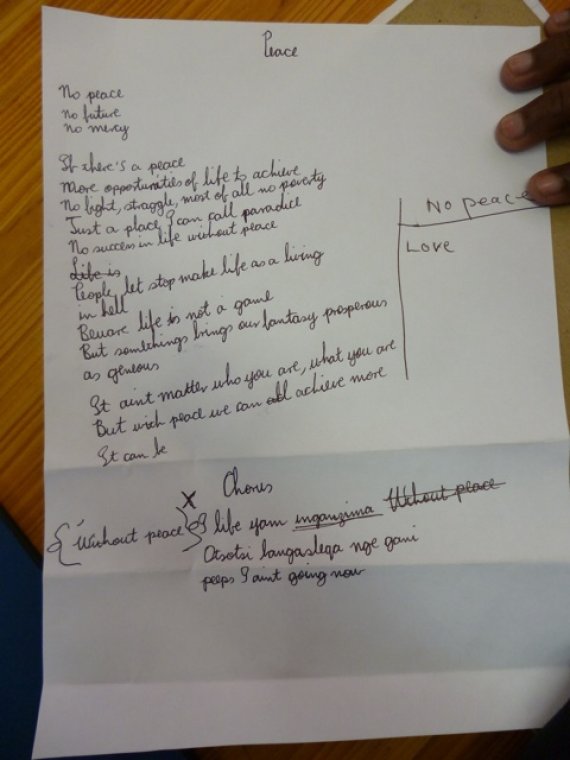 Peace
No peace
no future
no mercy
If there's a peace
More opportunities of life to achieve
No fight, straggle, most of all no poverty
Just a place I can call paradice
No success in life without peace
Life is
People, let stop make life as a living
in hell
Beware life is not a game
But somethings brings our fantasy prosperous
as geneous
It aint matter who you are, what you are
But with peace we can all achieve more
It can be
No peace
Love
Chorus
x
"Without peace" I life yam inganzima Without peace
Otsotsi bangaslega nge gani
peeps I aint going now